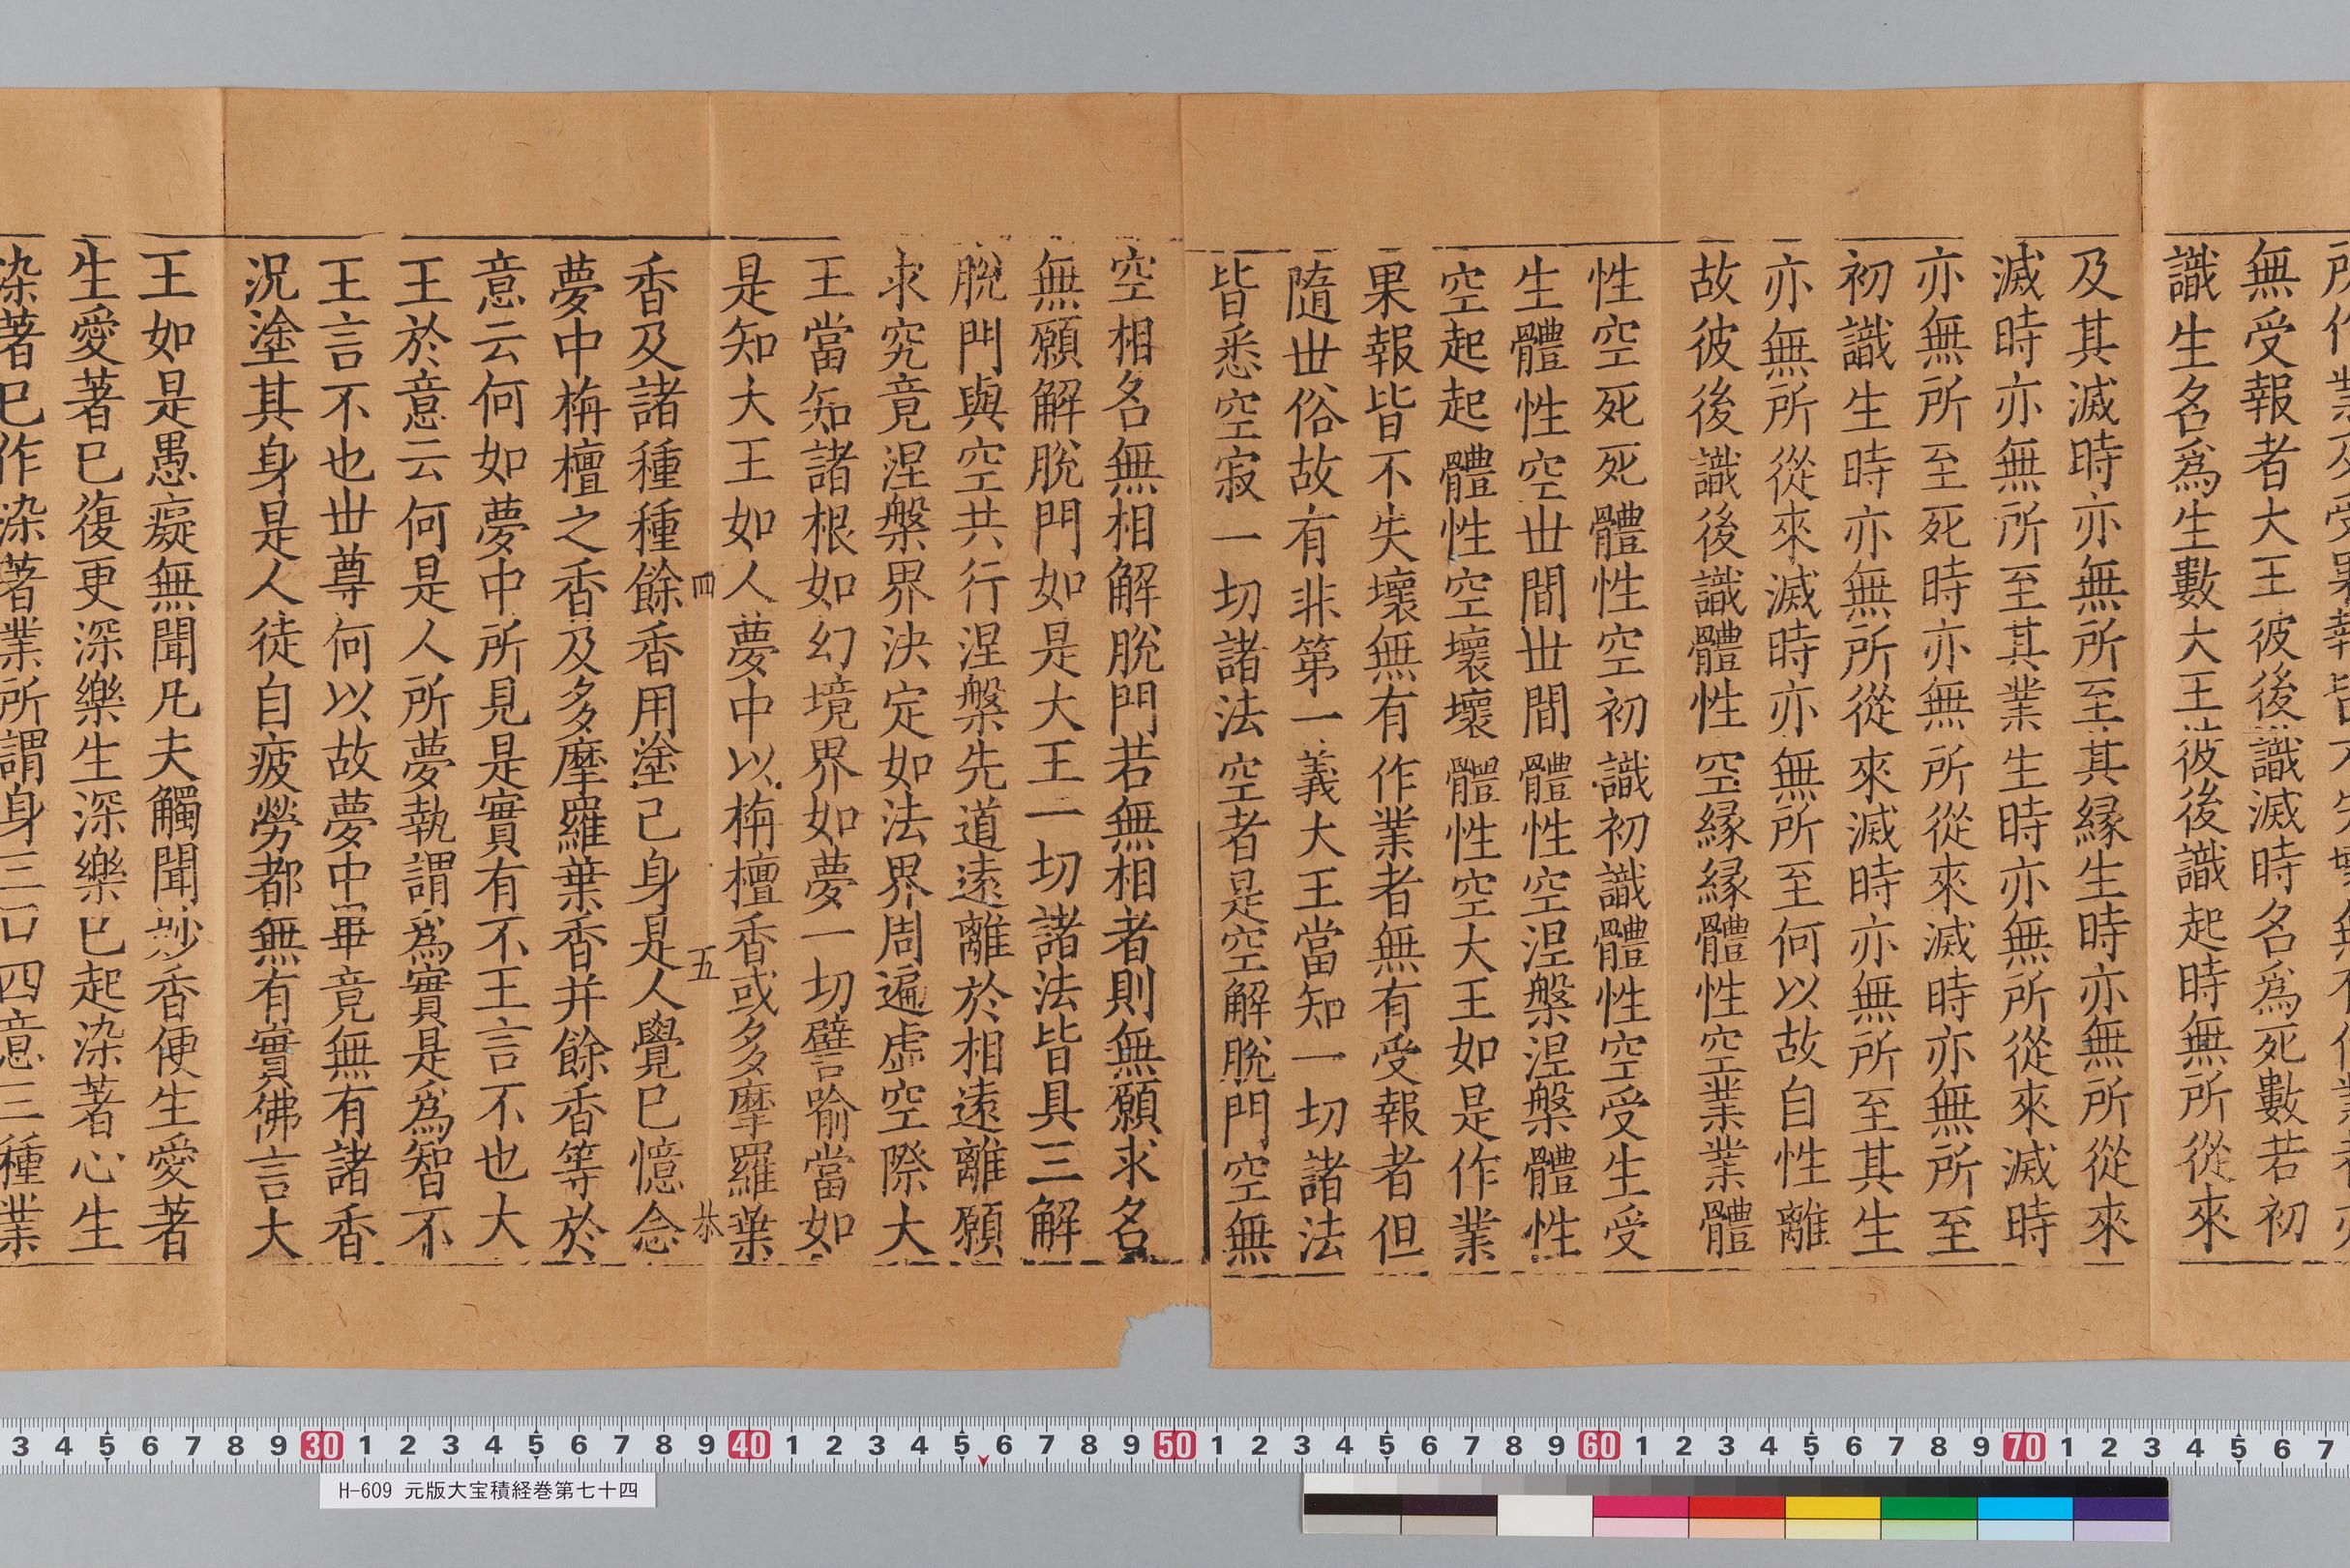 所作業及受果報皆不失壞無有作業者亦
無受報者大王彼後識滅時名爲死數若初
識生名爲生數大王彼後識起時無所從來
及其滅時亦無所至其縁生時亦無所從來
滅時亦無所至其業生時亦無所從來滅時
亦無所至死時亦無所從來滅時亦無所至
初識生時亦無所從來滅時亦無所至其生
亦無所從來滅時亦無所至何以故自性離
故彼後識後識體性空縁縁體性空業業體
性空死死體性空初識初識體性空受生受
生體性空世間世間體性空涅槃涅槃體性
空起起體性空壞壞體性空大王如是作業
果報皆不失壞無有作業者無有受報者但
隨世俗故有非第一義大王當知一切諸法
皆悉空寂一切諸法空者是空解脫門空無
空相名無相解脫門若無相者則無願求名
無願解脫門如是大王一切諸法皆具三解
脫門與空共行涅槃先道遠離於相遠離願
求究竟涅槃界決定如法界周遍虛空際大
王當知諸根如幻境界如夢一切譬喻當如
是知大王如人夢中以栴檀香或多摩羅葉
四 五 恭
香及諸種種餘香用塗己身是人覺已憶念
夢中栴檀之香及多摩羅葉香并餘香等於
意云何如夢中所見是實有不王言不也大
王於意云何是人所夢執謂爲實是爲智不
王言不也世尊何以故夢中畢竟無有諸香
況塗其身是人徒自疲勞都無有實佛言大
王如是愚癡無聞凡夫觸聞妙香便生愛著
生愛著已復更深樂生深樂已起染著心生
染著已作染著業所謂身三口四意三種業
3 4 5 6 7 8 9 30 1 2 3 4 5 6 7 8 9 40 1 2 3 4 5 6 7 8 9 50 1 2 3 4 5 6 7 8 9 60 1 2 3 4 5 6 7 8 9 70 1 2 3 4 5 6 7
H-609 元版大宝積経巻第七十四